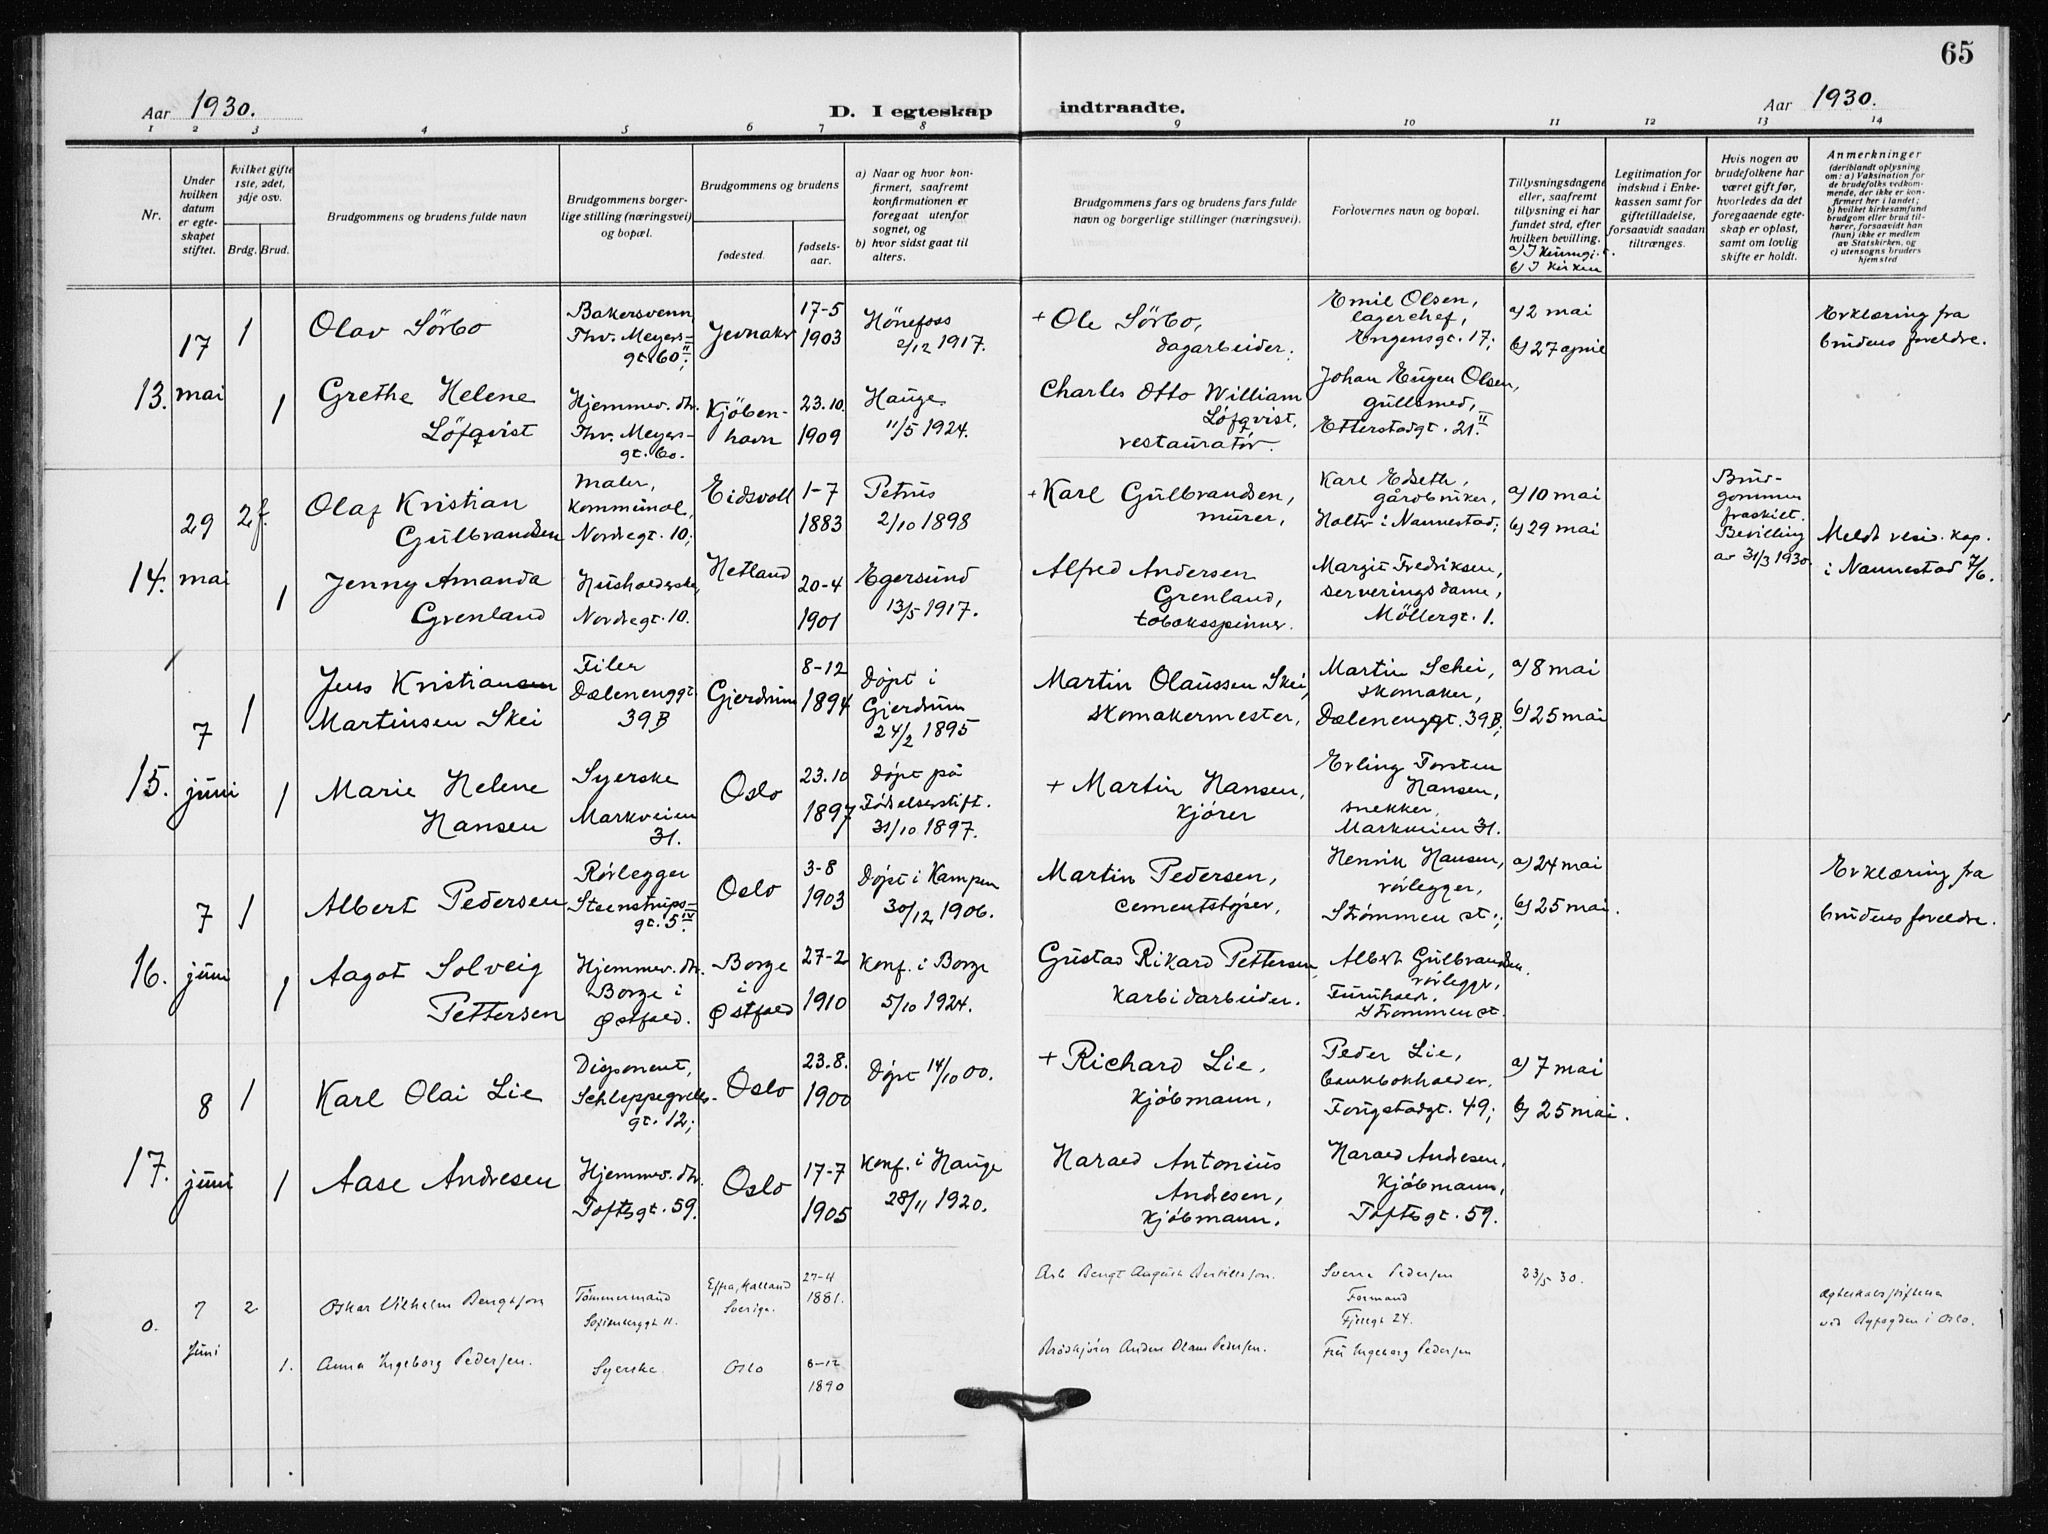 65
Aar 1930. D. I egteskap indtraadte. Aar 1930.
1 2 3 4 5 6 7 8 9 10 11 12 13 14
Nr.
Under hvilken datum er egteskapet stiftet.
Hvilket gifte 1ste, 2det, 3dje osv.
Brdg. Brud.
Brudgommens og brudens fulde navn
Brudgommens borgerlige stilling (næringsvei) og bopæl.
Brudgommens og brudens
fødested.
fødselsaar.
a) Naar og hvor konfirmert, saafremt konfirmationen er foregaat utenfor sognet, og
b) hvor sidst gaat til alters.
Brudgommens fars og brudens fars fulde navn og borgerlige stillinger (næringsvei).
Forlovernes navn og bopæl.
Tillysningsdagene eller, saafremt tillysning ei har fundet sted, efter hvilken bevilling.
b) I kirken
Legitimation for indskud i Enkekassen samt for giftetilladelse, forsaavidt saadan tiltrænges.
Hvis nogen av brudefolkene har været gift før, hvorledes da det foregaaende egteskap er opløst, samt om lovlig skifte er holdt.
Anmerkninger
(deriblandt oplysning om: a) Vaksination for de brudefolks vedkommende, der ikke er konfirmert her i landet;
b) hvilket kirkesamfund brudgom eller brud tilhører, forsaavidt han (hun) ikke er medlem av Statskirken, og
c) utensogns bruders hjemsted
13. 17 mai
1 Olav Sörbo
Bakersvenn,
Thv. Meyers-
gt. 60 II;
Jevnaker
17-5
1903
Hönefoss
2/12 1917.
+ Ole Sörbo,
dagarbeider;
Emil Olsen,
lagerchef,
Engensgt. 17;
a) 2 mai
b) 27 april
Erklæring fra
brudens foreldre.
1 Grethe Helene
Löfqvist
Hjemmev. dtr.
Thv. Meyers-
gt. 60.
Kjöben-
havn
23.10.
1909
Hauge
11/5 1924.
Charles Otto William
Löfqvist,
restauratör.
Johan Eugen Olsen,
gullsmed,
Etterstadgt. 21. II
14. 29 mai
2 f. Olaf Kristian
Gulbrandsen
Maler,
kommunal,
Nordregt. 10;
Eidsvoll
1-7
1883
Petrus
2/10 1898
+ Karl Gulbrandsen,
murer,
Karl Edseth,
gårdbruker,
Holter i Nannestad;
a) 10 mai
b) 29 mai
Brud-
gommen
fraskilt.
Bevilling
av 31/3 1930.
Meldt resid. kap.
i Nannestad 7/6.
1 Jenny Amanda
Grenland
Husholderske,
Nordregt. 10.
Hetland
20-4
1901
Egersund
13/5 1917.
Alfred Andersen
Grenland,
tobaksspinner.
Margit Fredriksen,
serveringsdame,
Möllergt. 1.
15. 7 juni
1 Jens Kristiansen
Martinsen Skei
Filer
Dælenenggt
39B
Gjerdrum
8-12
1894
Døpt i
Gjerdrum
24/2 1895
Martin Olaussen Skei,
skomakermester,
Martin Schei,
skomaker,
Dælenenggt. 39B;
a) 8 mai
b) 25 mai
1 Marie Helene
Hansen
Syerske
Markveien
31.
Oslo
23.10
1897
Døpt på
Fødselsstift.
31/10 1897.
+ Martin Hansen,
kjører
Erling Torsten
Hansen,
snekker,
Markveien 31.
16. 7 juni
1 Albert Pedersen
Rørlegger
Steenstrups-
gt. 5 IV.
Oslo
3-8
1903
Døpt i Kampen
30/12 1906.
Martin Pedersen,
cementstøper,
Henrik Hansen,
rørlegger,
Strømmen st.;
a) 24 mai
b) 25 mai.
Erklæring fra
brudens foreldre.
1 Aagot Solveig
Pettersen
Hjemmev. dtr.
Borge i
Østfold.
Borge
i
Østfold
27-2
1910
Konf. i Borge
5/10 1924.
Gustav Rikard Pettersen
karbidarbeider.
Albert Gulbrandsen.
rørlegger,
Furuhold.
Strømmen st.
17. 8 juni
1 Karl Olai Lie
Disponent,
Schleppegrells-
gt. 12;
Oslo
23.8.
1900
Døpt 14/10 00.
+ Richard Lie,
kjöbmann,
Peder Lie,
bankbokholder,
Tougstadgt. 49;
a) 7 mai
b) 25 mai.
1 Aase Andresen
Hjemmev. dtr.
Toftesgt. 59.
Oslo
17-7
1905
Konf. i Hauge
28/11 1920.
Harald Antonius
Andresen,
kjöbmann.
Harald Andresen,
kjöbmann,
Toftesgt. 59.
0. 7 Juni
2 Oskar Vilhelm Bengtson
Tömmermand
Sofienberggt 11.
Halland
Sverige.
27-4
1881.
Arb Bengt August
Sverre Pedersen
Formand
24.
23/5 30.
Ægteskabs stiftelse
ved Byfogden i Oslo.
1. Anna Ingeborg Pedersen.
Syerske.
Oslo
6-12
1890
Brödkjörer Anders Olaus Pedersen.
Fru Ingeborg Pedersen